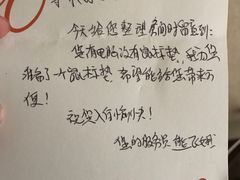 今天给您整理房间时留意到:
您有电脑没有鼠标垫，我为您
准备了一个鼠标垫，希望能给您带来方
便!
祝您入住愉快!
您的服务员